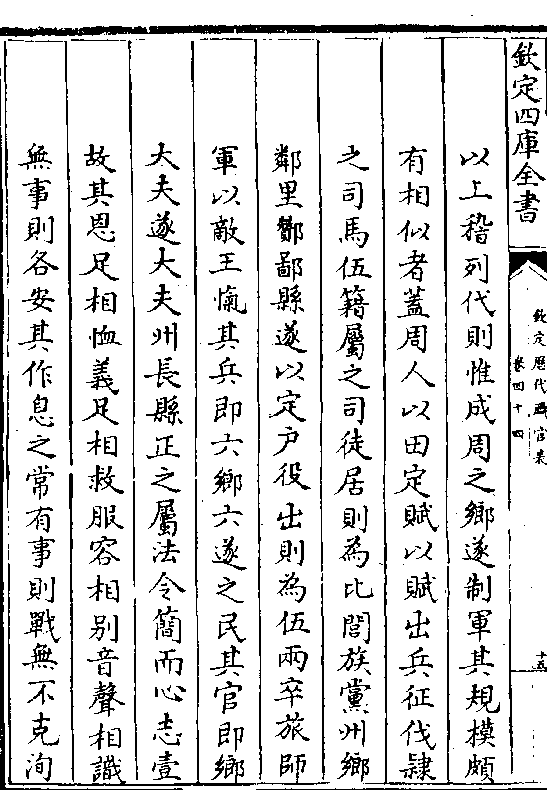 欽定四庫全書
欽定歷代職官表
卷四十四
十五
以上稽列代則惟成周之鄉遂制軍其規模頗
有相似者蓋周人以田定賦以賦出兵征伐隸
之司馬伍籍屬之司徒居則為比閭族黨州鄉
鄰里酇鄙縣遂以定户役出則為伍兩卒旅師
軍以敵王愾其兵即六鄉六遂之民其官即鄉
大夫遂大夫州長縣正之屬法令簡而心志壹
故其恩足相恤義足相救服容相别音聲相識
無事則各安其作息之常有事則戰無不克洵